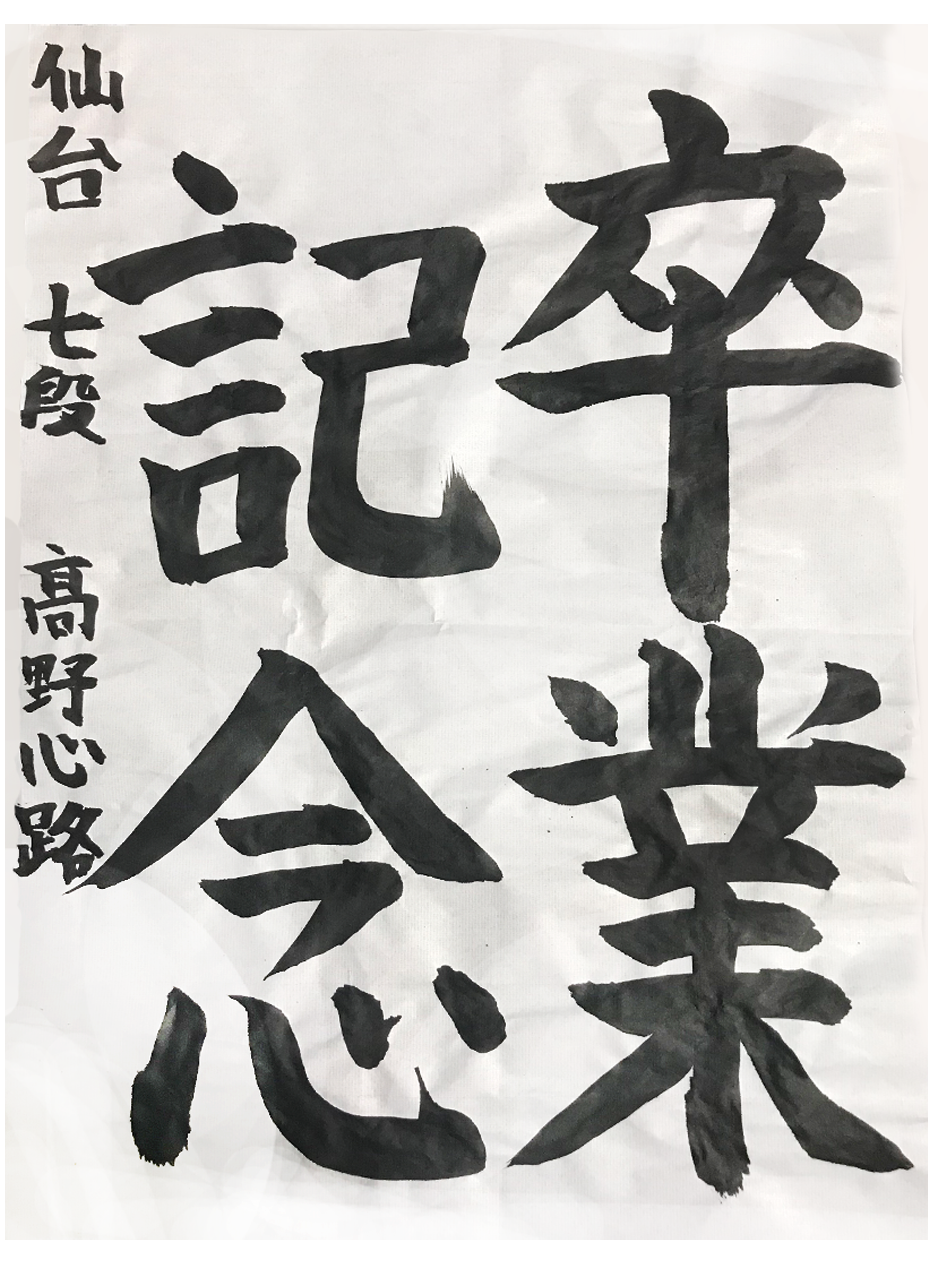 卒業
記念
仙台 七段 髙野心路